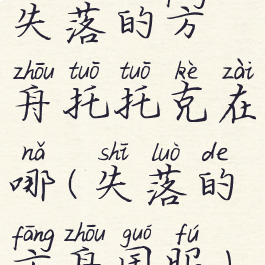 失落的方
zhōu tuō tuō kè zài
舟托托克在
nǎ shī luò de
哪(失落的
fāng zhōu guó fú
方舟国服)